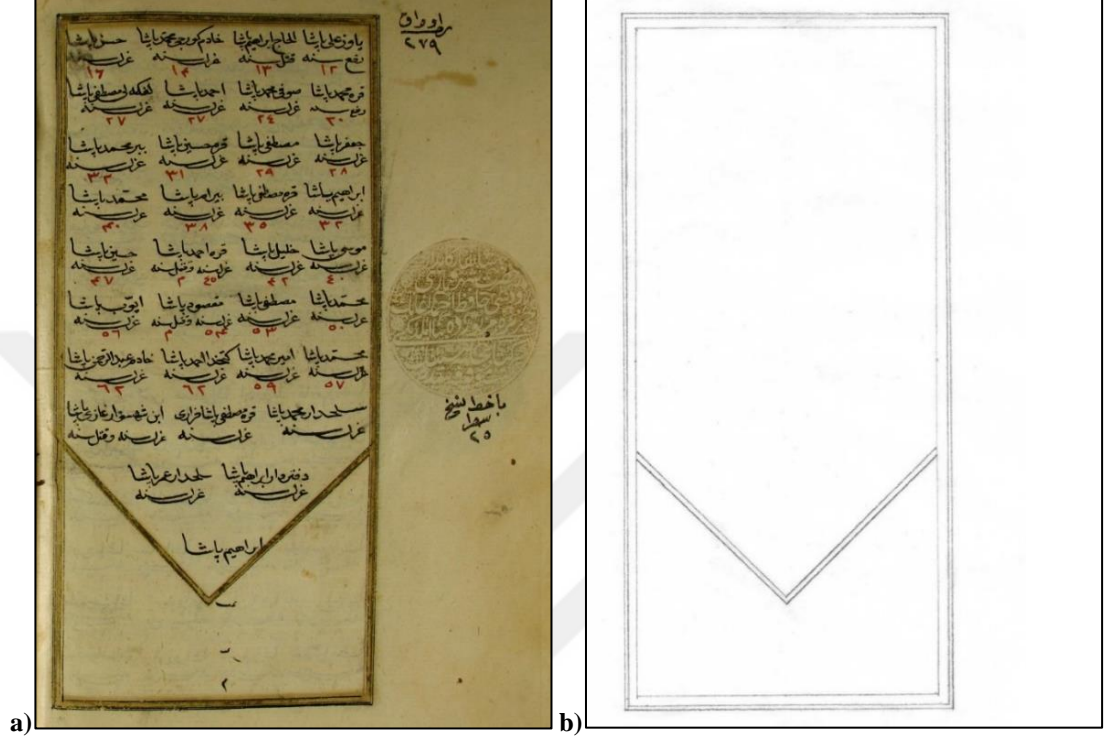 ياوز على پاشا الحاج ابراهيم پاشا خادم كورجى محمد پاشا حسن پاشا
رفع سنه قتل سنه عزل سنه عزل سنه
١٢ ١٣ ١٤ ١٦
قره محمد پاشا صوفى محمد پاشا احمد پاشا مصطفى پاشا
رفع سنه عزل سنه عزل سنه عزل سنه
٢٠ ٢٤ ٢٧ ٢٧
جعفر پاشا مصطفى پاشا قره حسين پاشا بيرمحمد پاشا
عزل سنه عزل سنه عزل سنه عزل سنه
٢٨ ٢٩ ٣١ ٣٢
ابراهيم پاشا قره مصطفى پاشا بيرام پاشا محمد پاشا
عزل سنه عزل سنه عزل سنه عزل سنه
٣٢ ٣٥ ٣٨ ٤٠
موسى پاشا خليل پاشا قره احمد پاشا حسين پاشا
عزل سنه عزل سنه عزل سنه وقتل سنه عزل سنه
٤٠ ٤٢ ٤٥ م ٤٧
محمد پاشا مصطفى پاشا مقصود پاشا ايوب پاشا
عزل سنه عزل سنه عزل سنه وقتل سنه عزل سنه
٥٠ ٥٣ ٥٤ م ٥٦
محمد پاشا امير محمد پاشا كتخدا احمد پاشا خادم عبد الرحمن پاشا
عزل سنه عزل سنه عزل سنه عزل سنه
٥٧ ٥٩ ٦٢ ٦٢
سلحدار محمد پاشا قره مصطفى پاشا فرارى ابن شهسوار غازى پاشا
عزل سنه عزل سنه عزل سنه وقتل سنه
دفتردار ابراهيم پاشا سلحدار عمر پاشا
عزل سنه عزل سنه
ابراهيم پاشا
اوراق
٢٧٩
با خط نسخ
سطر
٢٥
a) b)